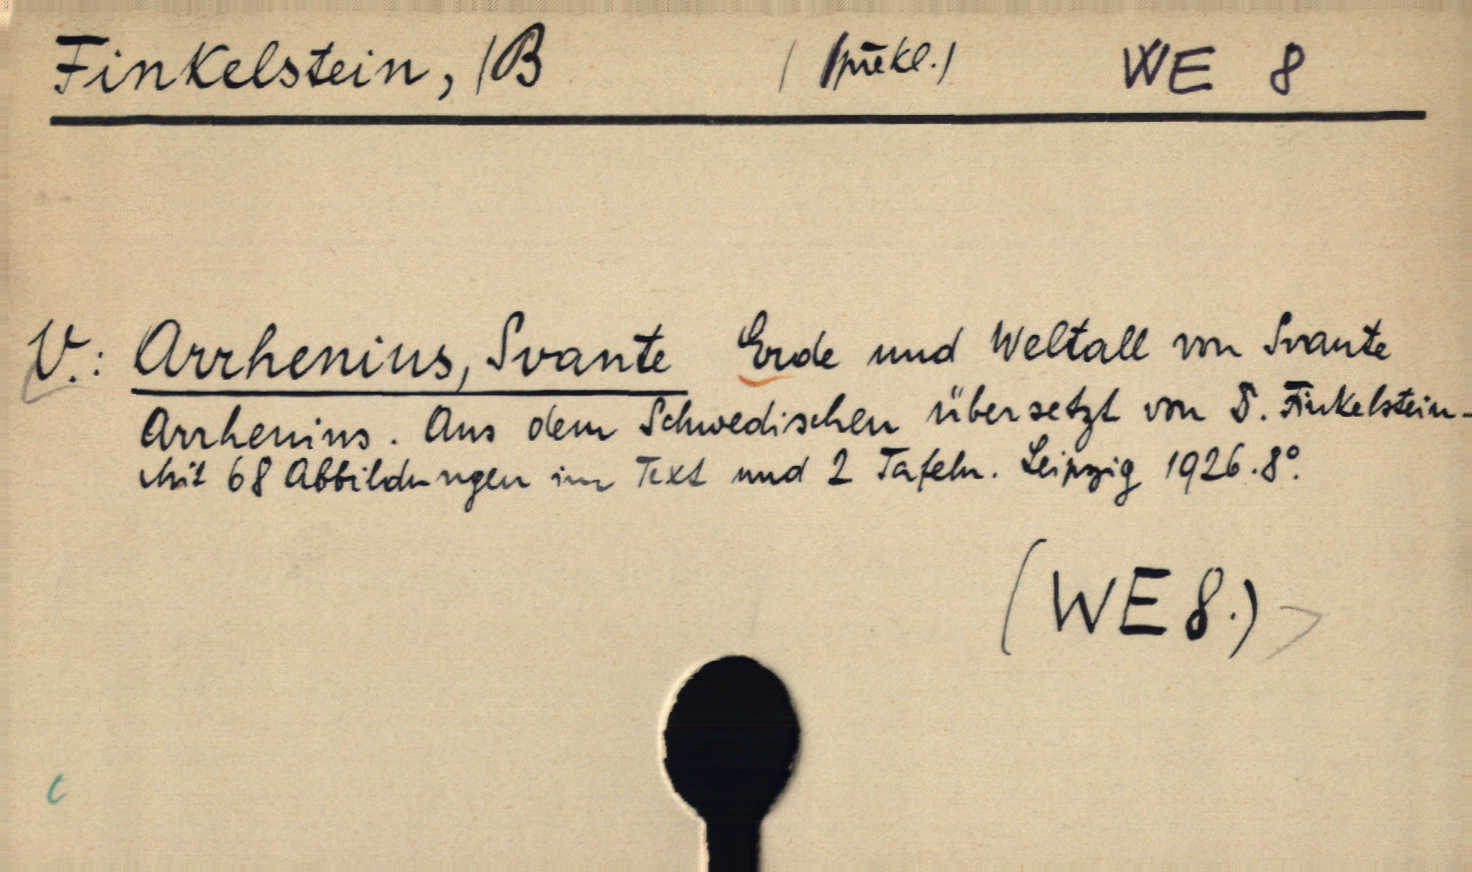 Finkelstein, /B / překl./ WE 8
V.: Arrhenius, Svante Erde und Weltall von Svante
Arrhenius. Aus dem Schwedischen übersetzt von B. Finkelstein-
Mit 68 Abbildungen im Text und 2 Tafeln. Leipzig 1926. 8°.
(WE 8.)